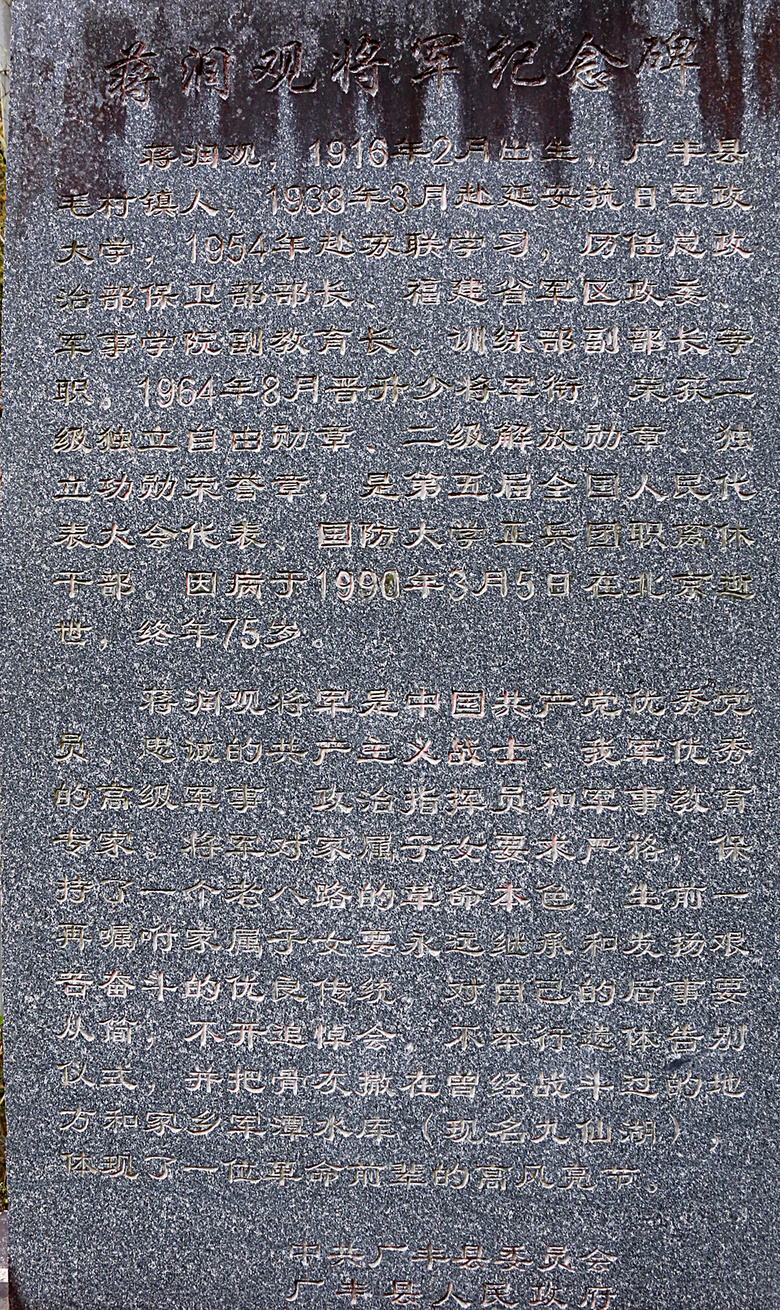 蒋润观将军纪念碑
蒋润观，1916年2月出生，广丰县
毛村镇人，1938年3月赴延安抗日军政
大学，1954年赴苏联学习，历任总政
治部保卫部部长、福建省军区政委、
军事学院副教育长、训练部副部长等
职。1964年8月晋升少将军衔，荣获二
级独立自由勋章、二级解放勋章、独
立功勋荣誉章，是第五届全国人民代
表大会代表、国防大学正兵团职离休
干部。因病于1990年3月5日在北京逝
世，终年75岁。
蒋润观将军是中国共产党优秀党
员、忠诚的共产主义战士、我军优秀
的高级军事、政治指挥员和军事教育
专家。将军对家属子女要求严格，保
持了一个老八路的革命本色，生前一
再嘱咐家属子女要永远继承和发扬艰
苦奋斗的优良传统，对自己的后事要
从简，不开追悼会，不举行遗体告别
仪式，并把骨灰撒在曾经战斗过的地
方和家乡军潭水库（现名九仙湖），
体现了一位革命前辈的高风亮节。
中共广丰县委员会
广丰县人民政府